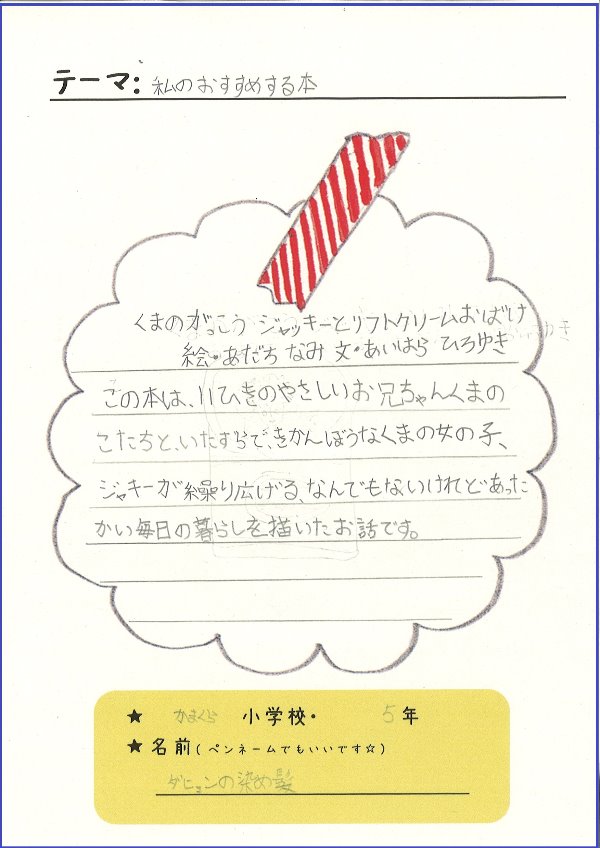 テーマ: 私のおすすめする本
くまのがっこう ジャッキーとソフトクリームおばけ
絵・あだち なみ 文・あいはら ひろゆき
この本は、11ひきのやさしいお兄ちゃんくまの
こたちと、いたずらで、きかんぼうなくまの女の子、
ジャキーが繰り広げる、なんでもないけれどあった
かい毎日の暮らしを描いたお話です。
★ かまくら 小学校・ 5年
★名前(ペンネームでもいいです☆)
ダヒョンの染め髪